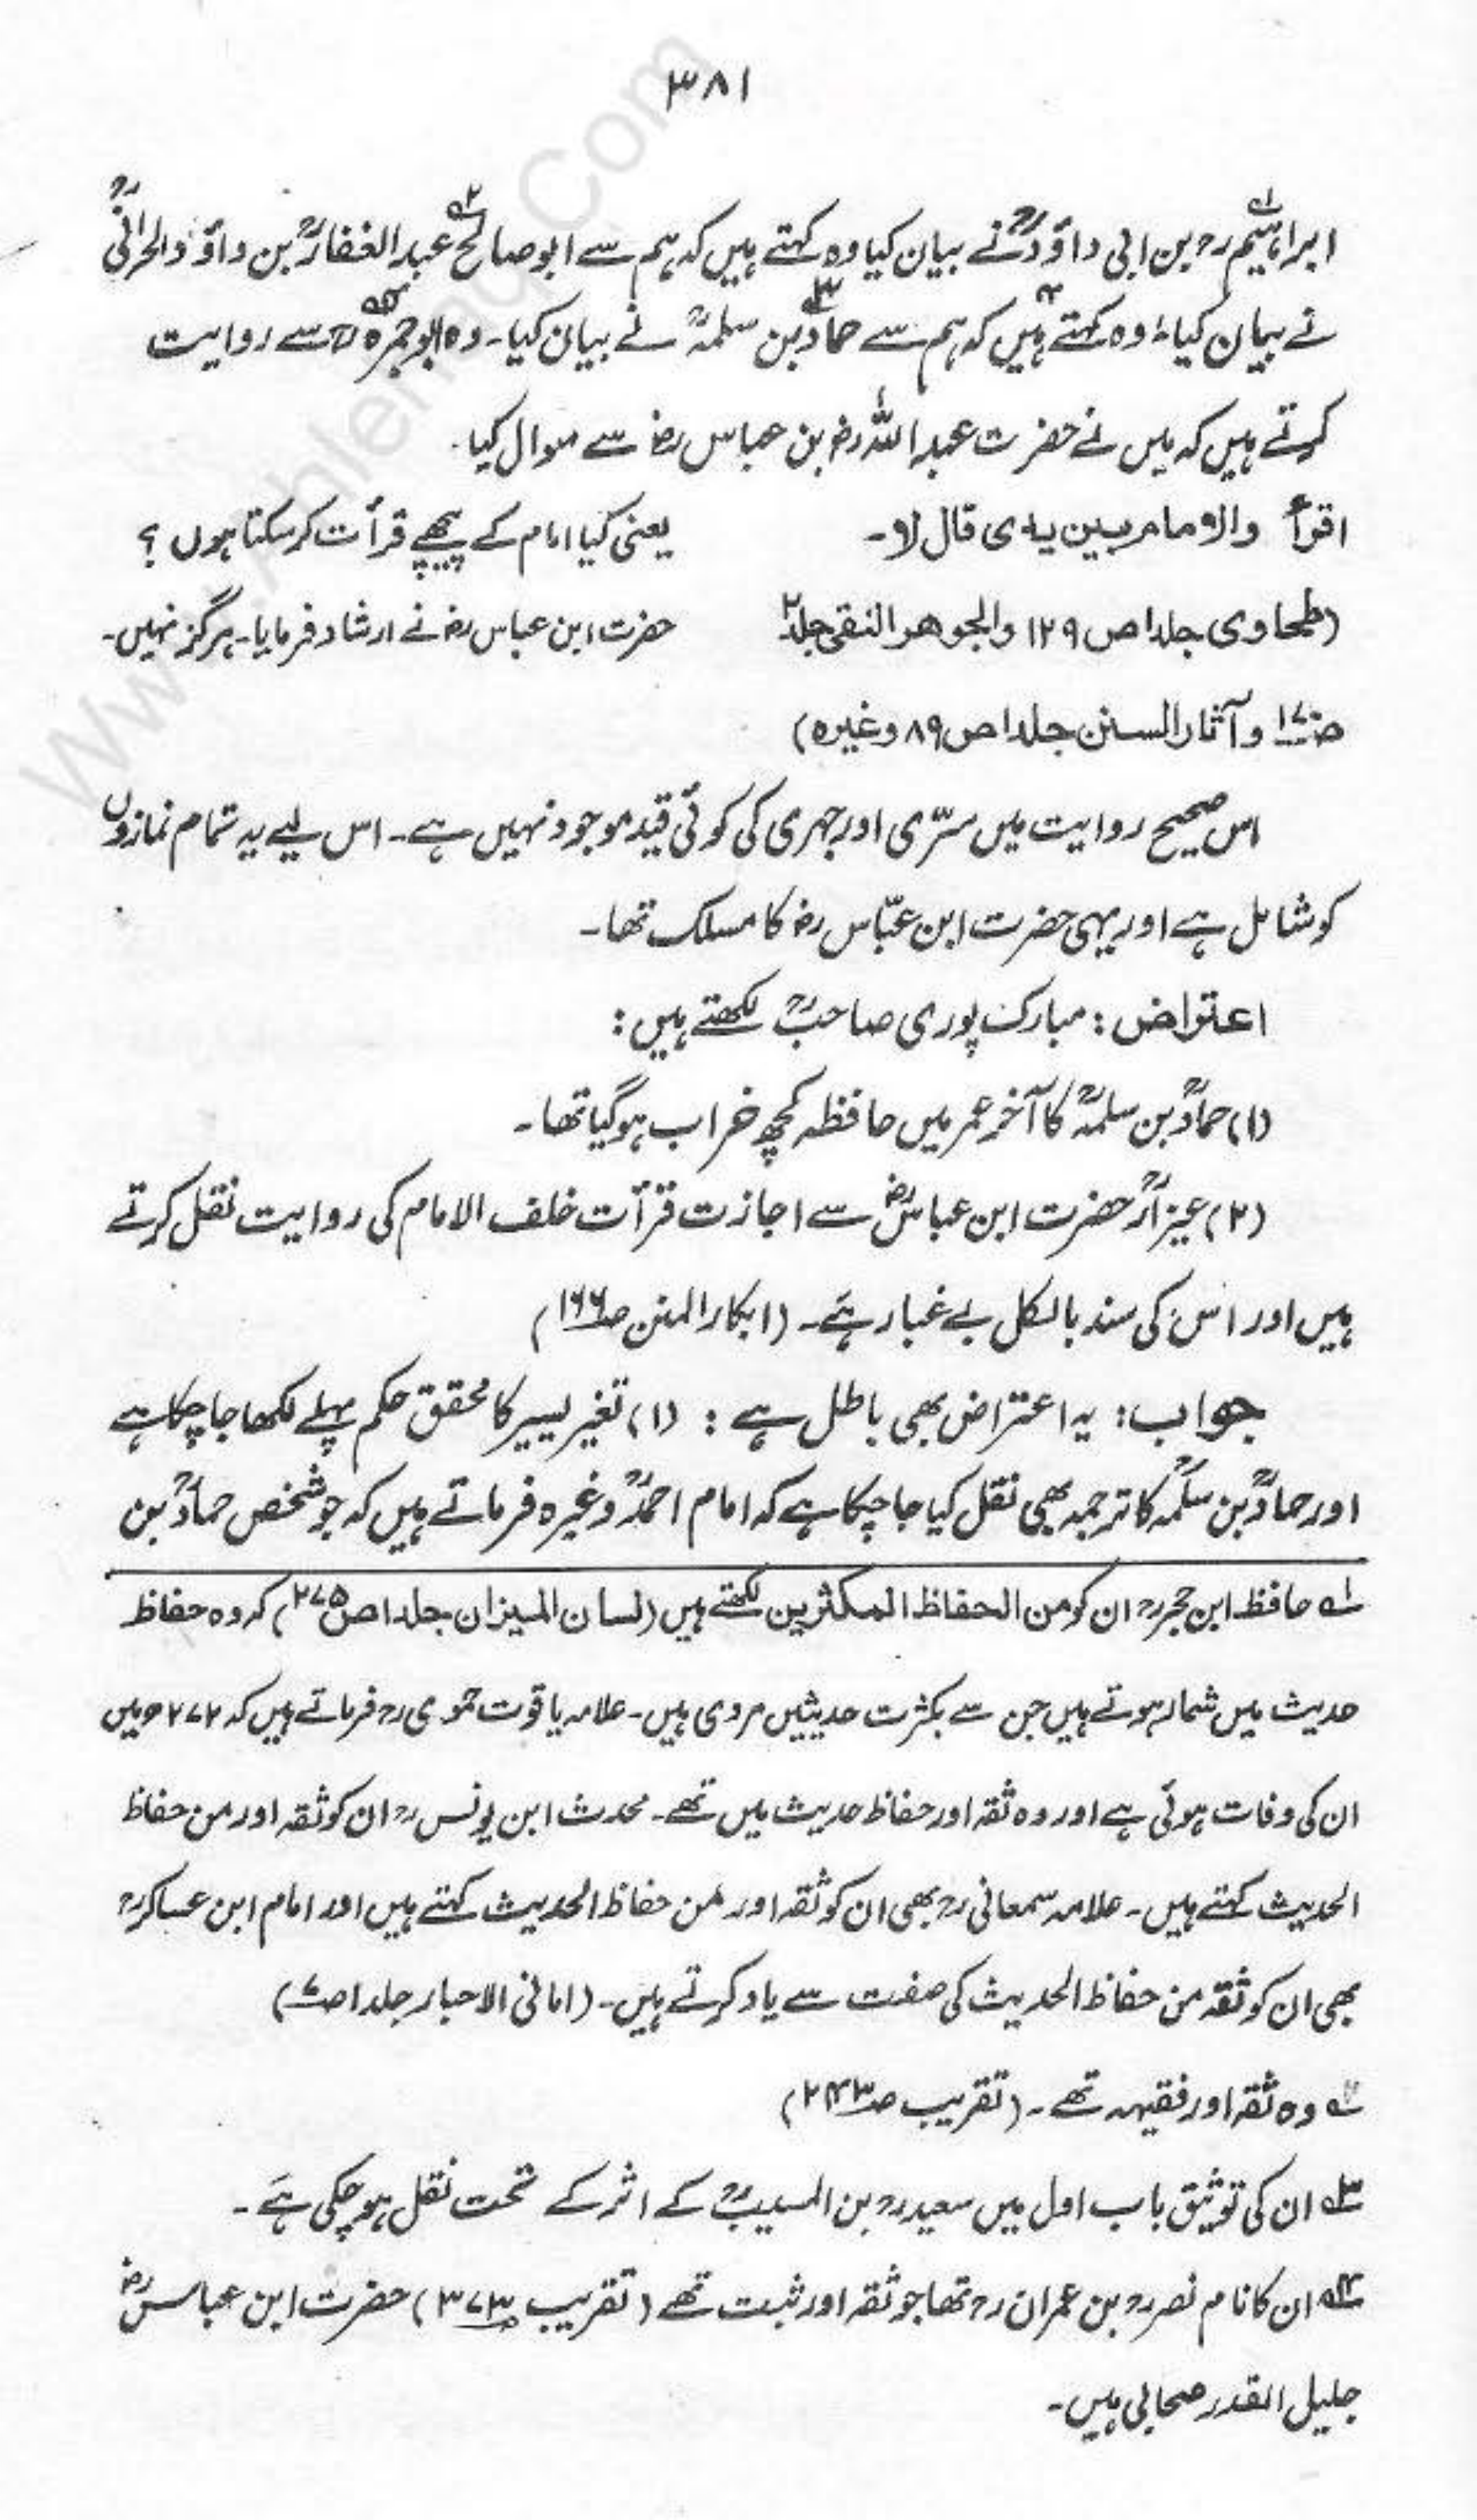 ۳۸۱
ابراہیمؒ بن ابی داؤدؒ نے بیان کیا وہ کہتے ہیں کہ ہم سے ابو صالح عبدالغفارؒ بن داؤد الحرانیؒ
نے بیان کیا، وہ کہتے ہیں کہ ہم سے حمادؒ بن سلمہؒ نے بیان کیا۔ وہ ابو جمرہؒ سے روایت
کرتے ہیں کہ میں نے حضرت عبداللہؓ بن عباسؓ سے سوال کیا۔
اقرأ والامام بین یدی قال لا۔ یعنی کیا امام کے پیچھے قرأت کر سکتا ہوں ؟
(طحاوی جلد ۱ ص ۱۲۹ والجوھر النقی جلد ۲ حضرت ابن عباسؓ نے ارشاد فرمایا۔ ہرگز نہیں۔
صـ۱۷۰ و آثار السنن جلد ۱ ص ۸۹ وغیرہ)
اس صحیح روایت میں سرّی اور جہری کی کوئی قید موجود نہیں ہے۔ اس لیے یہ تمام نمازوں
کو شامل ہے اور یہی حضرت ابن عبّاسؓ کا مسلک تھا۔
اعتراض : مبارک پوری صاحبؒ لکھتے ہیں :
(۱) حمادؒ بن سلمہؒ کا آخر عمر میں حافظہ کچھ خراب ہو گیا تھا۔
(۲) عیزارؒ حضرت ابن عباسؓ سے اجازت قرأت خلف الامام کی روایت نقل کرتے
ہیں اور اس کی سند بالکل بے غبار ہے۔ (ابکار المنن صـ۱۶۶)
جواب : یہ اعتراض بھی باطل ہے : (۱) تغیر یسیر کا محقق حکم پہلے لکھا جا چکا ہے
اور حمادؒ بن سلمہؒ کا ترجمہ بھی نقل کیا جا چکا ہے کہ امام احمدؒ وغیرہ فرماتے ہیں کہ جو شخص حمادؒ بن
؂۱ حافظ ابن حجرؒ ان کو من الحفاظ المکثرین لکھتے ہیں (لسان المیزان جلد ۱ ص ۲۷۵) کہ وہ حفاظ
حدیث میں شمار ہوتے ہیں جن سے بکثرت حدیثیں مروی ہیں۔ علامہ یاقوت حموی رح فرماتے ہیں کہ ۲۷۲ھ میں
ان کی وفات ہوئی ہے اور وہ ثقہ اور حفاظ حدیث میں تھے۔ محدث ابن یونس رح ان کو ثقہ اور من حفاظ
الحدیث کہتے ہیں۔ علامہ سمعانی رح بھی ان کو ثقہ اور من حفاظ الحدیث کہتے ہیں اور امام ابن عساکرؒ
بھی ان کو ثقہ من حفاظ الحدیث کی صفت سے یاد کرتے ہیں۔ (امانی الاحبار جلد ۱ صـ)
؂۲ وہ ثقہ اور فقیہہ تھے۔ (تقریب صـ۲۴۳)
؂۳ ان کی توثیق باب اول میں سعیدؒ بن المسیبؒ کے اثر کے تحت نقل ہو چکی ہے۔
؂۴ ان کا نام نصرؒ بن عمرانؒ تھا جو ثقہ اور ثبت تھے (تقریب صـ۳۷۳) حضرت ابن عباسؓ
جلیل القدر صحابی ہیں۔